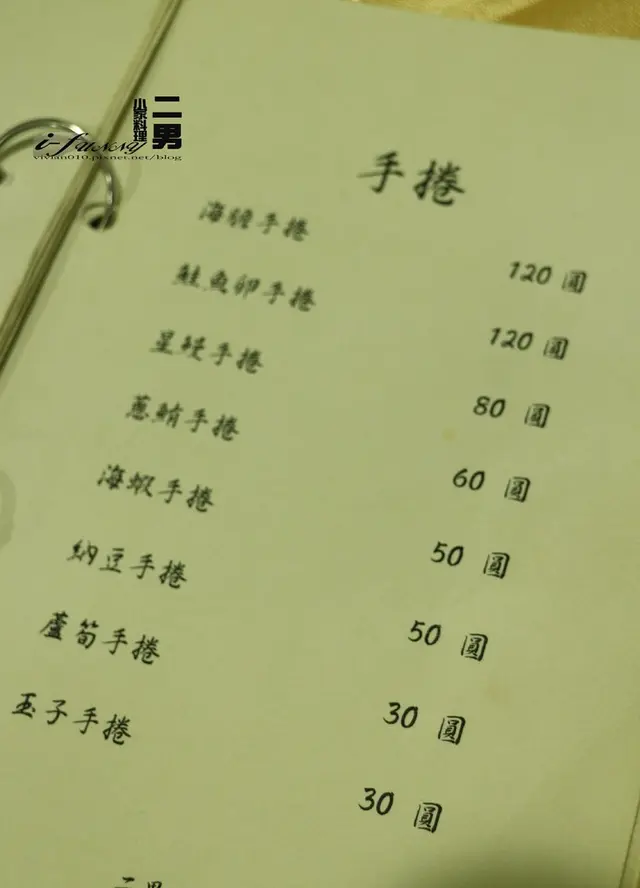 二男
小家料理
i-Funny
vivian010.pixnet.net/blog
手捲
海膽手捲 120 圓
鮭魚卵手捲 120 圓
星鰻手捲 80 圓
蔥鮪手捲 60 圓
海蝦手捲 50 圓
納豆手捲 50 圓
蘆筍手捲 30 圓
玉子手捲 30 圓
二男